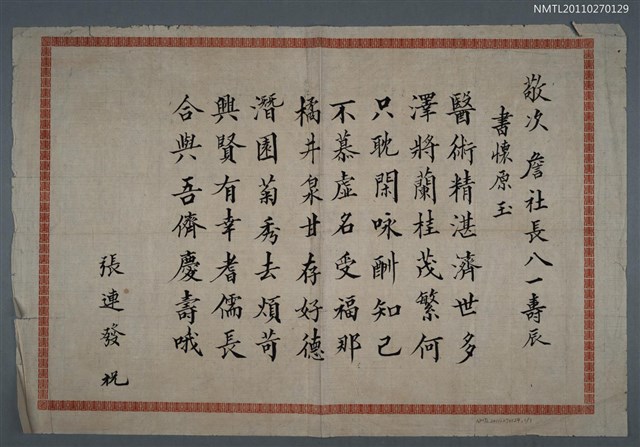 敬次 詹社長八一壽辰
書懷原玉
醫術精湛濟世多
澤將蘭桂茂繁何
只耽閑咏酬知己
不慕虛名受福那
橘井泉甘存好德
潛園菊秀去煩苛
興賢有幸耆儒長
合與吾儕慶壽哦
張連發 祝
NMTL20110270129